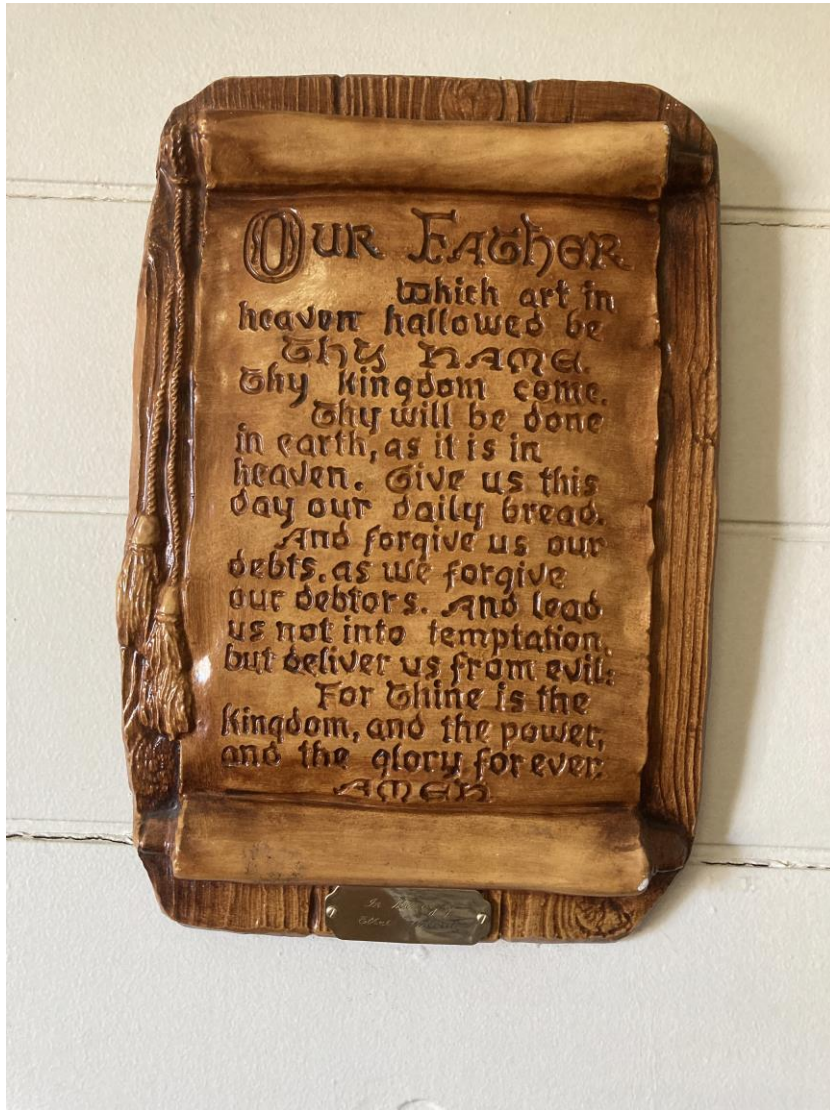 OUR FATHER
Which art in
heaven hallowed be
Thy NAME.
Thy Kingdom come.
Thy will be done
in earth, as it is in
heaven. Give us this
day our daily bread.
And forgive us our
debts, as we forgive
our debtors. And lead
us not into temptation,
but deliver us from evil:
For Thine is the
Kingdom, and the power,
and the glory, for ever.
AMEN
In